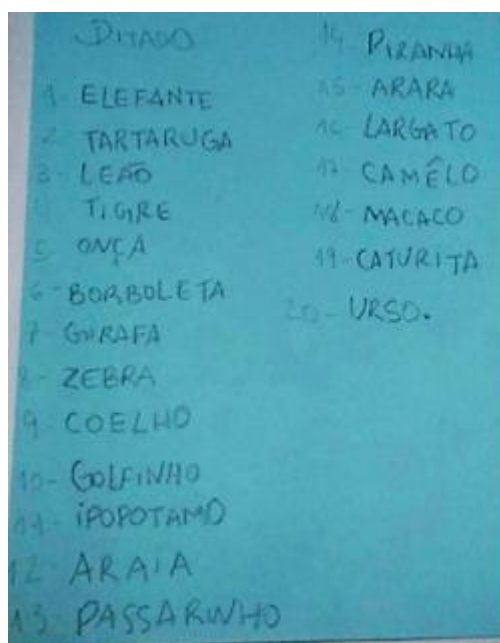 DITADO
1- ELEFANTE
2- TARTARUGA
3- LEÃO
4 TIGRE
5 ONÇA
6- BORBOLETA
7- GIRAFA
8- ZEBRA
9- COELHO
10- GOLFINHO
11- IPOPOTAMO
12 ARAIA
13 PASSARINHO
14- PIRANHA
15- ARARA
16- LARGATO
17- CAMÊLO
18- MACACO
19- CATURITA
20- URSO.